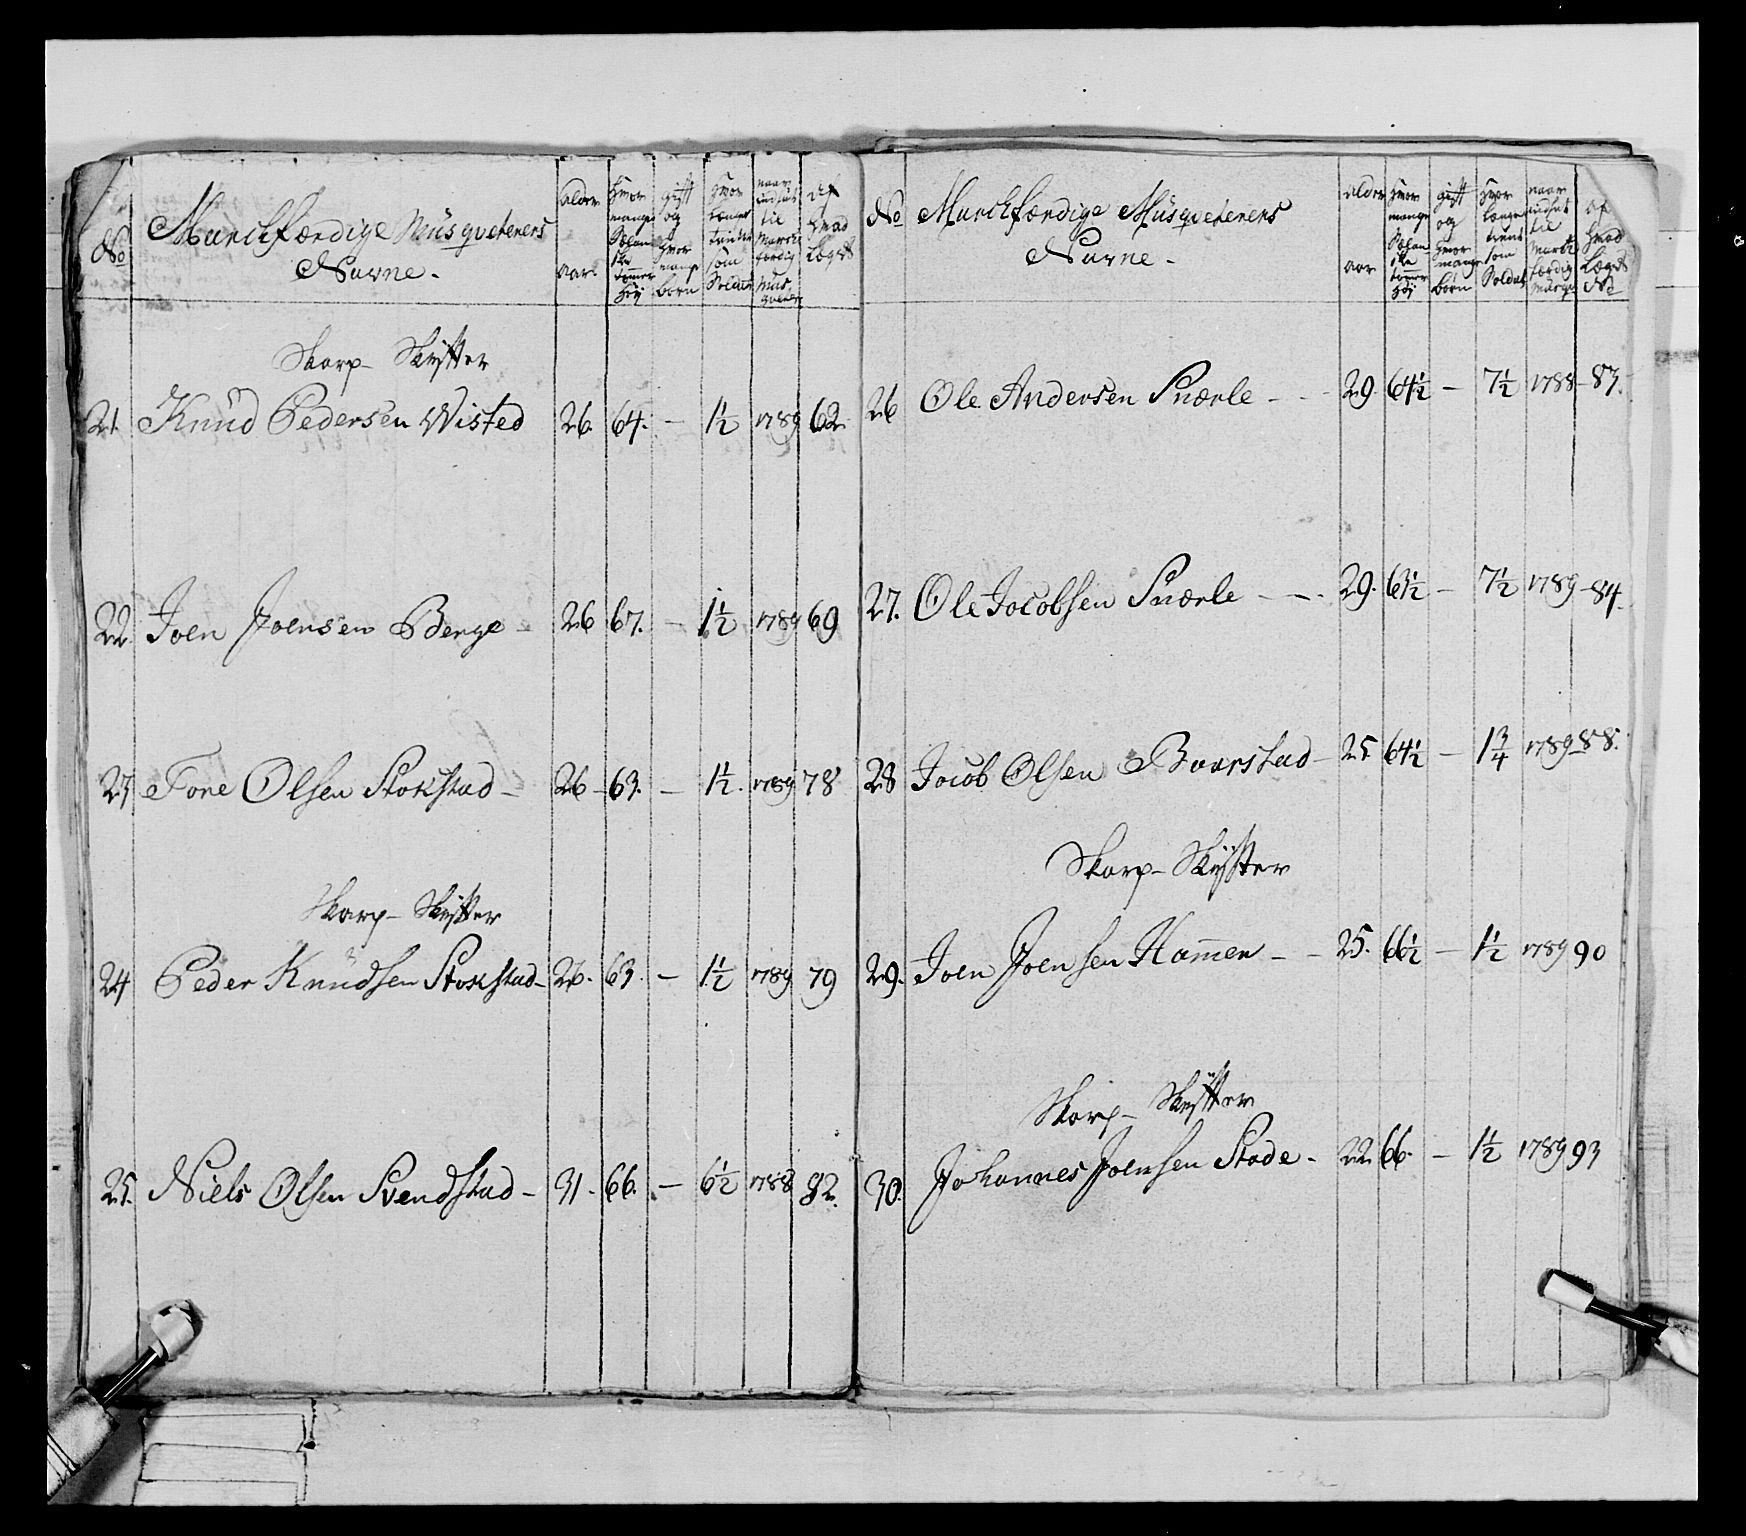 No
Marchfærdige Müsqveterers
Navne.
alder
aar.
Hvor
mange
Sælan-
ske
tommer
høÿ
gift
og
hvor
mange
børn
hvor
længe
tient
som
Soldat
naar
indsat
til
March-
færdig
Mus-
qveteer
Af
hvad
Lægd
Skarp- Skÿtter
21 Knud Pedersen Wisted 26. 64. - 1½ 1789 62.
22. Joen Joensen Berge - 26 67. - 1½ 1789 69
23 Tore Olsen Stokstad - 26 - 63. - 1½. 1789 78
Skarp- Skÿtter
24 Peder Knudsen Stokstad - 26. 63. - 1½ 1789 79
25. Niels Olsen Svendstad - 31. 66. - 6½ 1788 82.
No
Marchfærdige Müsqveterers
Navne.
alder
aar
hvor
mange
Sælan-
ske
tommer
høÿ
gift
og
hvor
mange
børn
hvor
længe
tient
som
Soldat
naar
indsat
til
March
færdig
Musqv
af
hvad
Lægd
No
26 Ole Andersen Snærle - - - 29. 64½ - 7½ 1788 - 83.
27. Ole Jacobsen Snærle - - - 29. 63½ - 7½ 1789 - 84.
28 Jacob Olsen Baarstad - 25 64½ - 1¾ 1789 - 88.
Skarp- Skÿtter
29. Joen Joensen Ham̄en - - 25. 66½ - 1½ 1789 90
Skarp- Skÿtter
30. Johannes Joensen Stade - 22. 66. - 1½ 1789 93